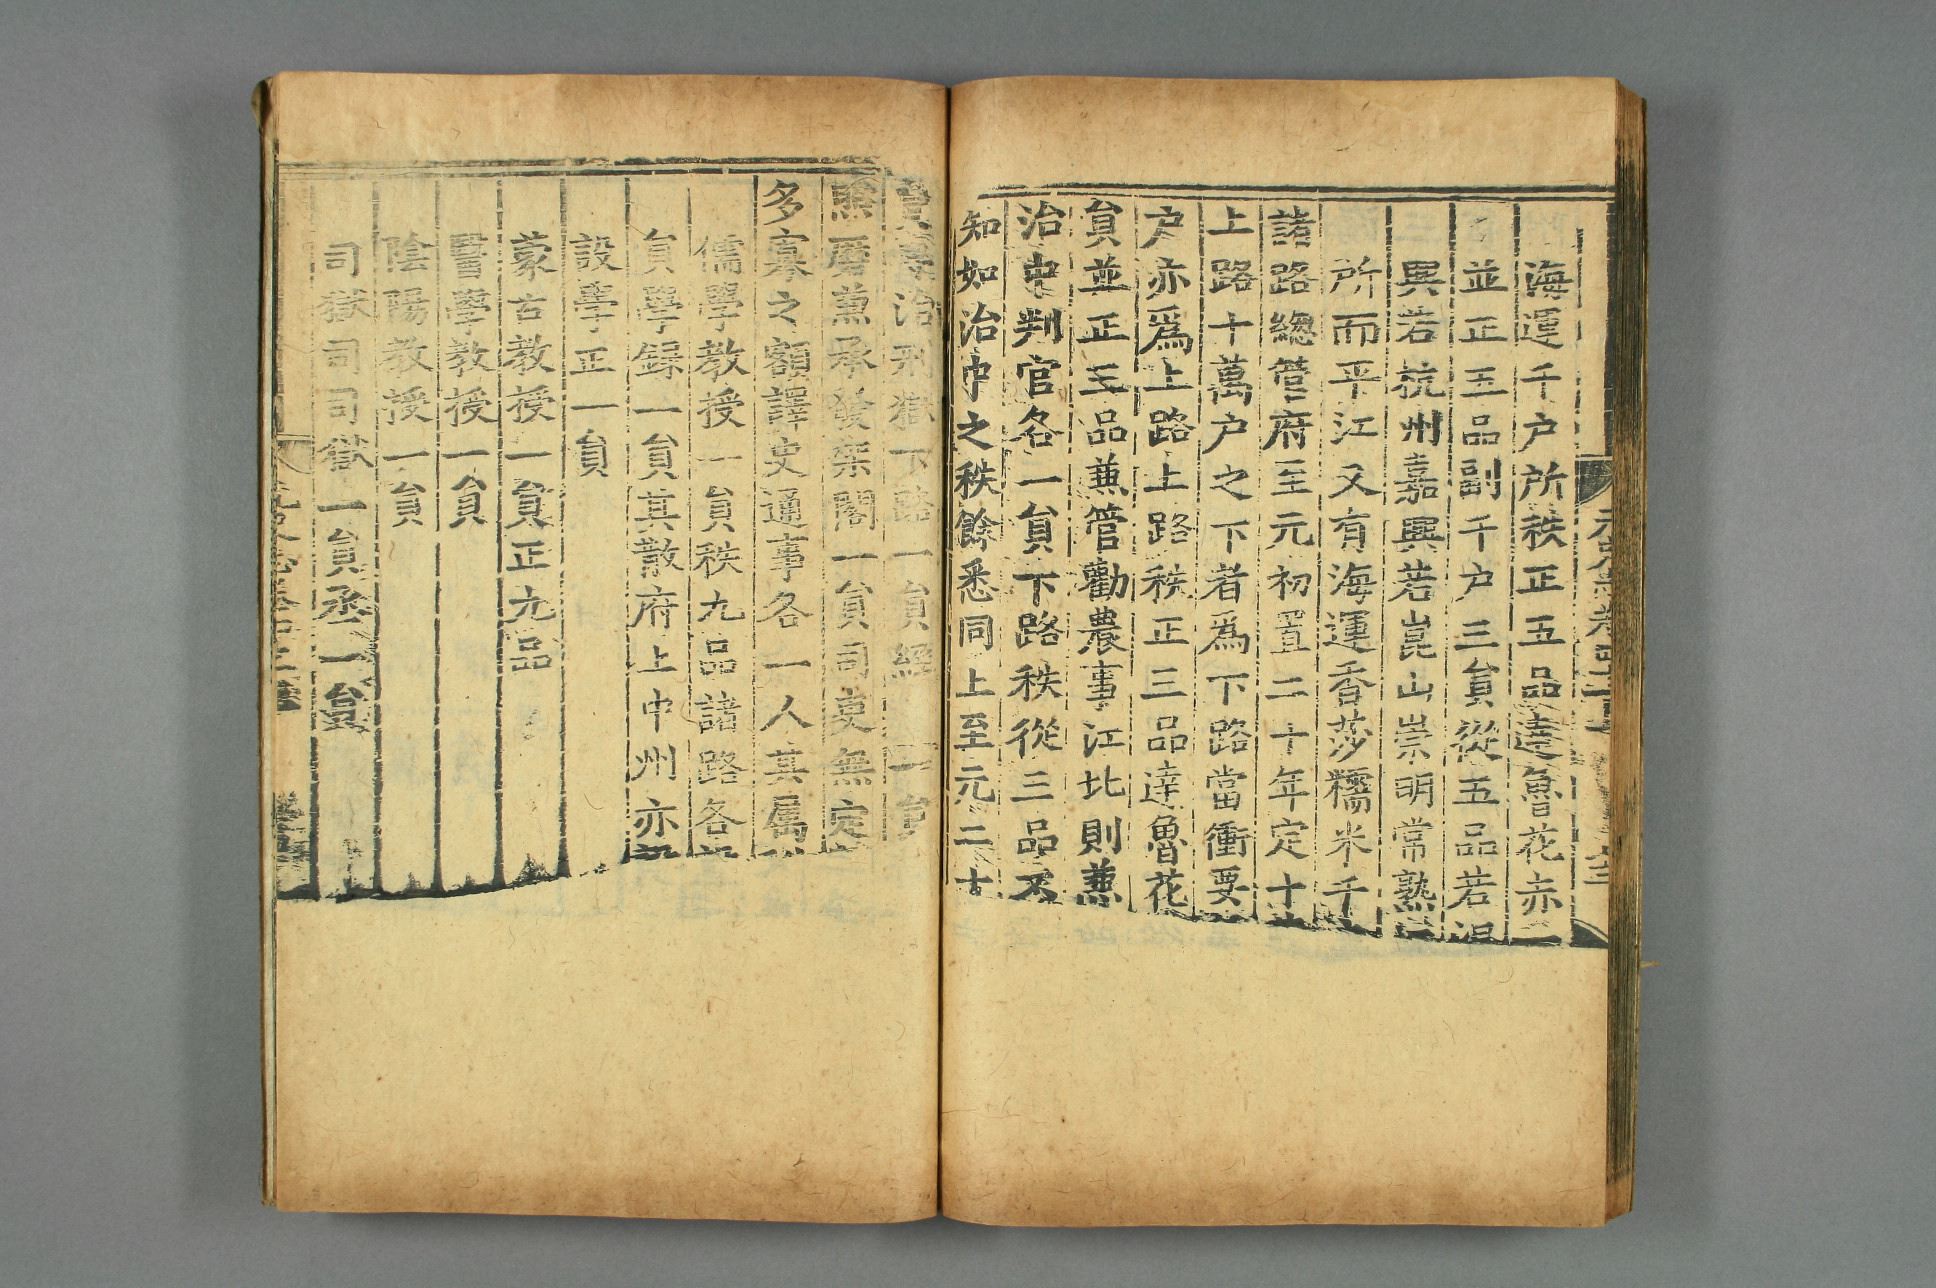 海運千户所秩正五品達魯花亦
並正五品副千户三員從五品若温
異若杭州嘉興若崑山崇明常熟
所而平江又有海運香莎糯米千
諸路總管府至元初置二十年定十
上路十萬户之下者爲下路當衝要
户亦爲上路上路秩正三品達魯花
員並正三品兼管勸農事江北則兼
治中判官各一員下路秩從三品不
知如治中之秩餘悉同上至元二十
員專治刑獄下路一員經一員
照磨兼承發架閣一員司吏無定
多寡之額譯史通事各一人其属
儒學教授一員秩九品諸路各設
員學録一員其散府上中州亦設
設學正一員
蒙古教授一員正九品
醫學教授一員
陰陽教授一員
司獄司司獄一員丞一員